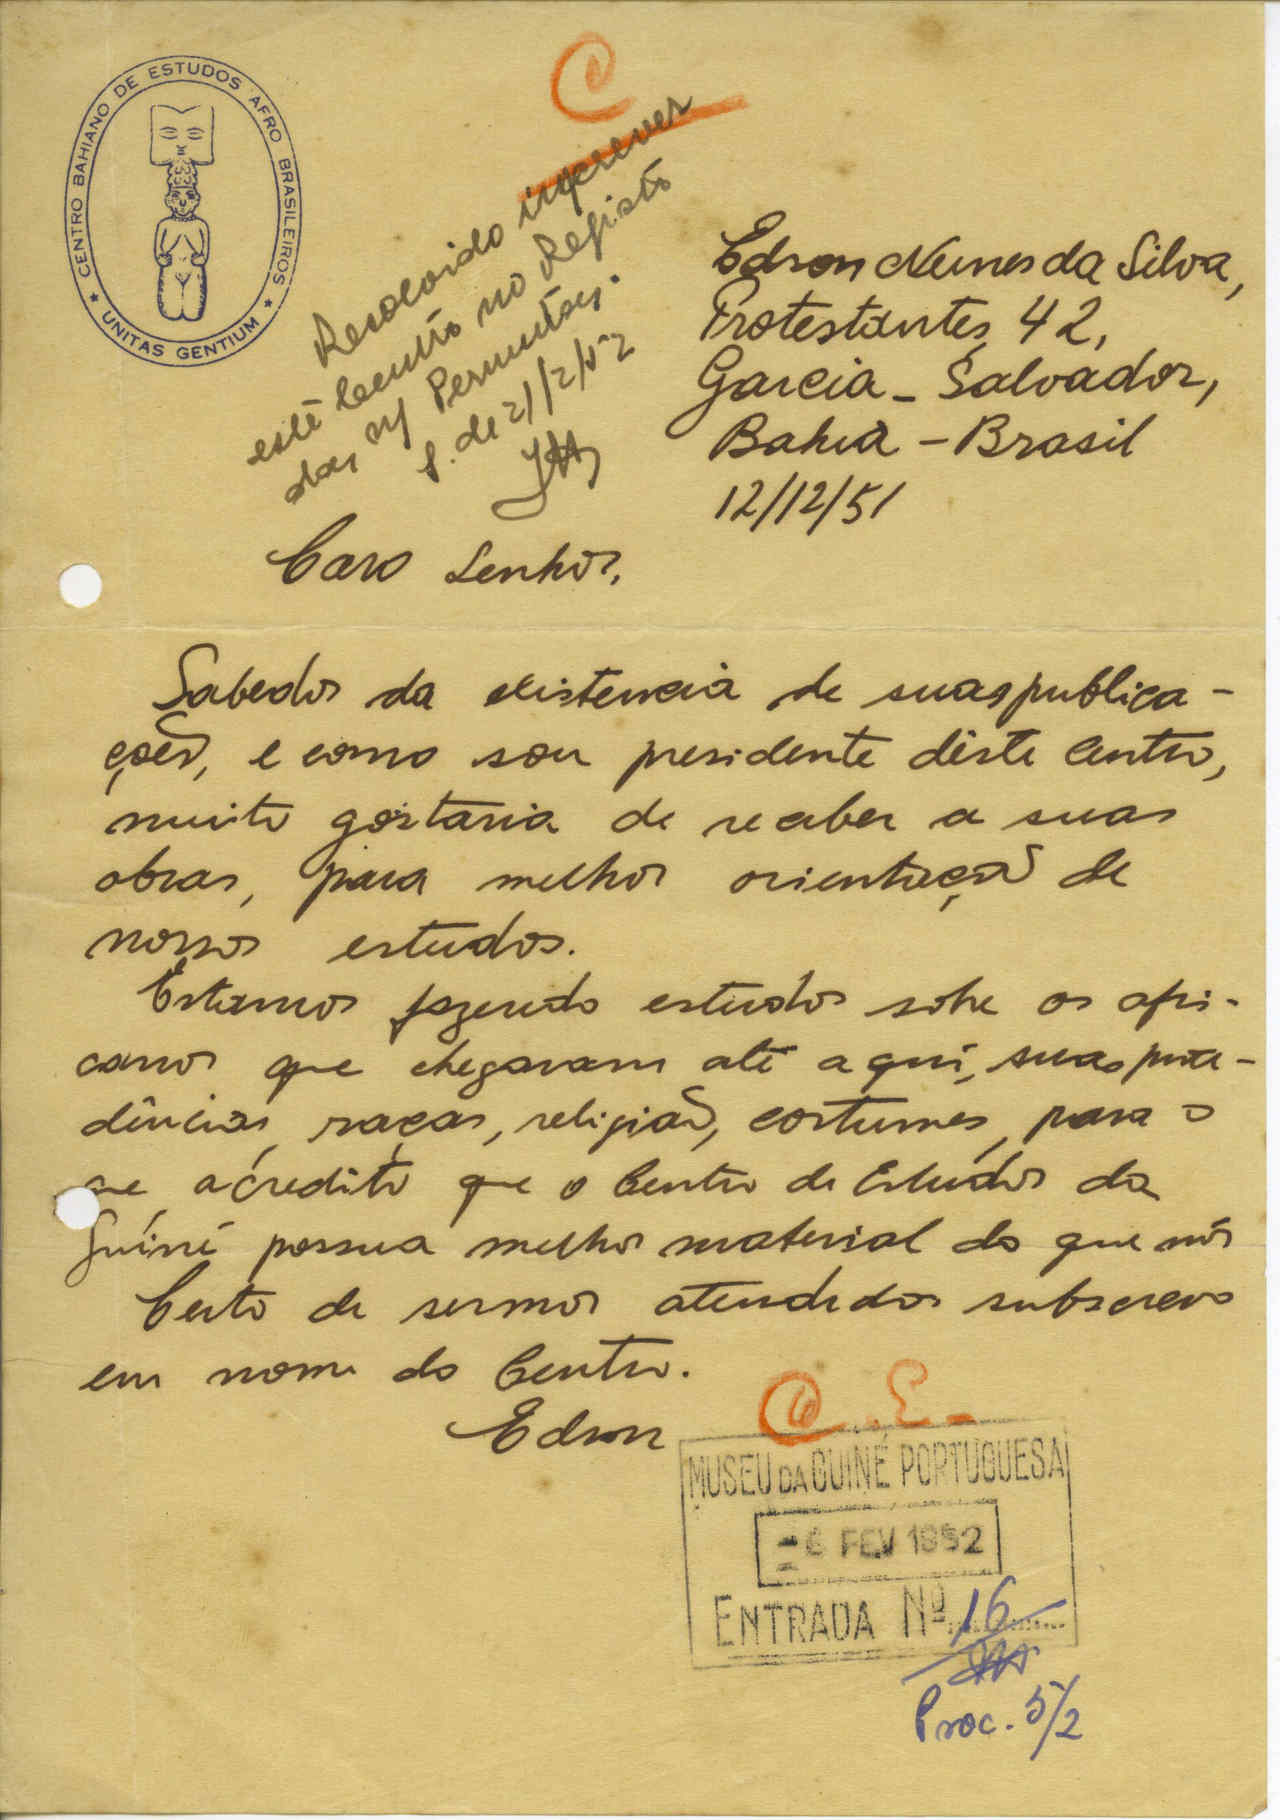 CENTRO BAHIANO DE ESTUDOS AFRO BRASILEIROS
★ UNITAS GENTIUM ★
C
Resolvido inscrever
este Centro no Registo
das n/ Permutas.
S. de 21/2/52
Edson Nunes da Silva,
Protestantes, 42,
Garcia - Salvador,
Bahia - Brasil
12/12/51
Caro Senhor,
Sabedor da existencia de suas publica-
ções, e como sou presidente dêste Centro,
muito gostaria de receber a suas
obras, para melhor orientação de
nossos estudos.
Estamos fazendo estudos sobre os afri-
canos que chegaram até aqui, suas proce-
dências, raças, religião, costumes, para o
que acredito que o Centro de Estudos da
Guiné possua melhor material do que nós
Certo de sermos atendidos subscrevo
em nome do Centro.
Edson
C. E.
MUSEU DA GUINÉ PORTUGUESA
FEV 1952
ENTRADA Nº 16
Proc. 5/2